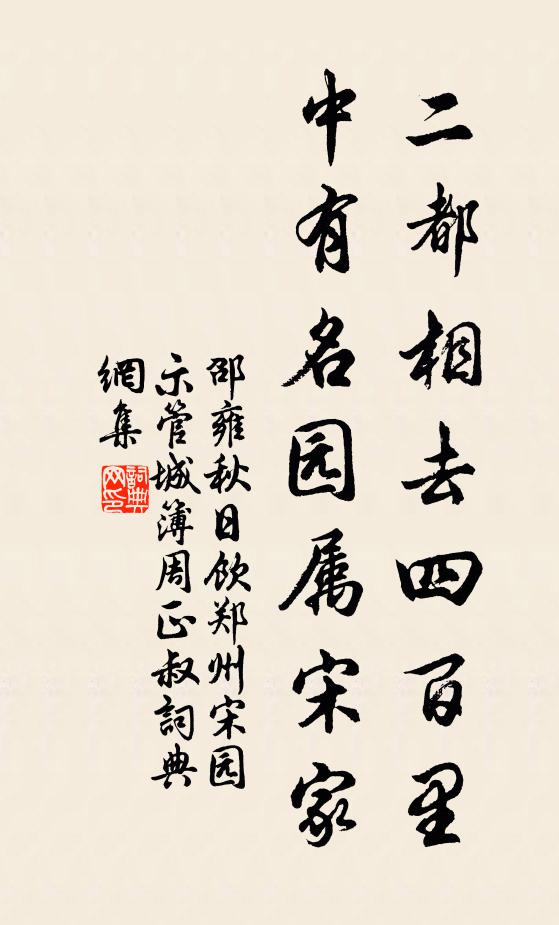 二都相去四百里
中有名园属宋家
邵雍秋日饮郑州宋园
示管城簿周正叔詞典
網集
詞典
网印